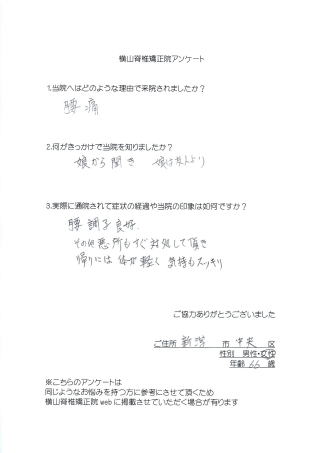 横山脊椎矯正院アンケート
1.当院へはどのような理由で来院されましたか？
腰痛
2.何がきっかけで当院を知りましたか？
娘から聞き 娘は友人より
3.実際に通院されて症状の経過や当院の印象は如何ですか？
腰調子良好
その他悪い所もすぐ対処して頂き
帰りには体が軽く気持もスッキリ
ご協力ありがとうございました
ご住所 新潟 市 中央 区
性別 男性・女性
年齢 66 歳
※こちらのアンケートは
同じようなお悩みを持つ方に参考にさせて頂くため
横山脊椎矯正院 web に掲載させていただく場合が有ります